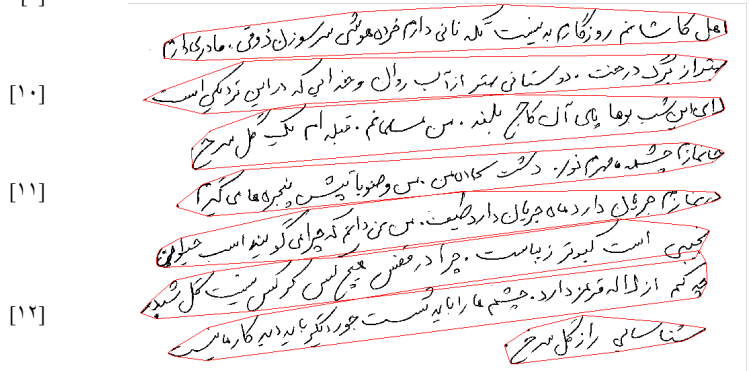 [۱۰]
[۱۱]
[۱۲]
اهل کاشانم روزگارم بد نیست تکه نانی دارم خرده هوشی سر سوزن ذوقی. مادری دارم
بهتر از برگ درخت. دوستانی بهتر از آب روان و خدایی که در این نزدیکی است
لای این شب بوها پای آن کاج بلند. من مسلمانم. قبله ام یک گل سرخ
جانمازم چشمه مهرم نور. دشت سجاده من. من وضو با تپش پنجره ها می گیرم
در نمازم جریان دارد ماه جریان دارد طیف. من نمی دانم که چرا می گویند اسب حیوان
نجیبی است کبوتر زیباست. چرا در قفس هیچ کسی کرکس نیست گل شبدر
چه کم از لاله قرمز دارد. چشم ها را باید شست جور دیگر باید دید کار ما نیست
شناسایی راز گل سرخ